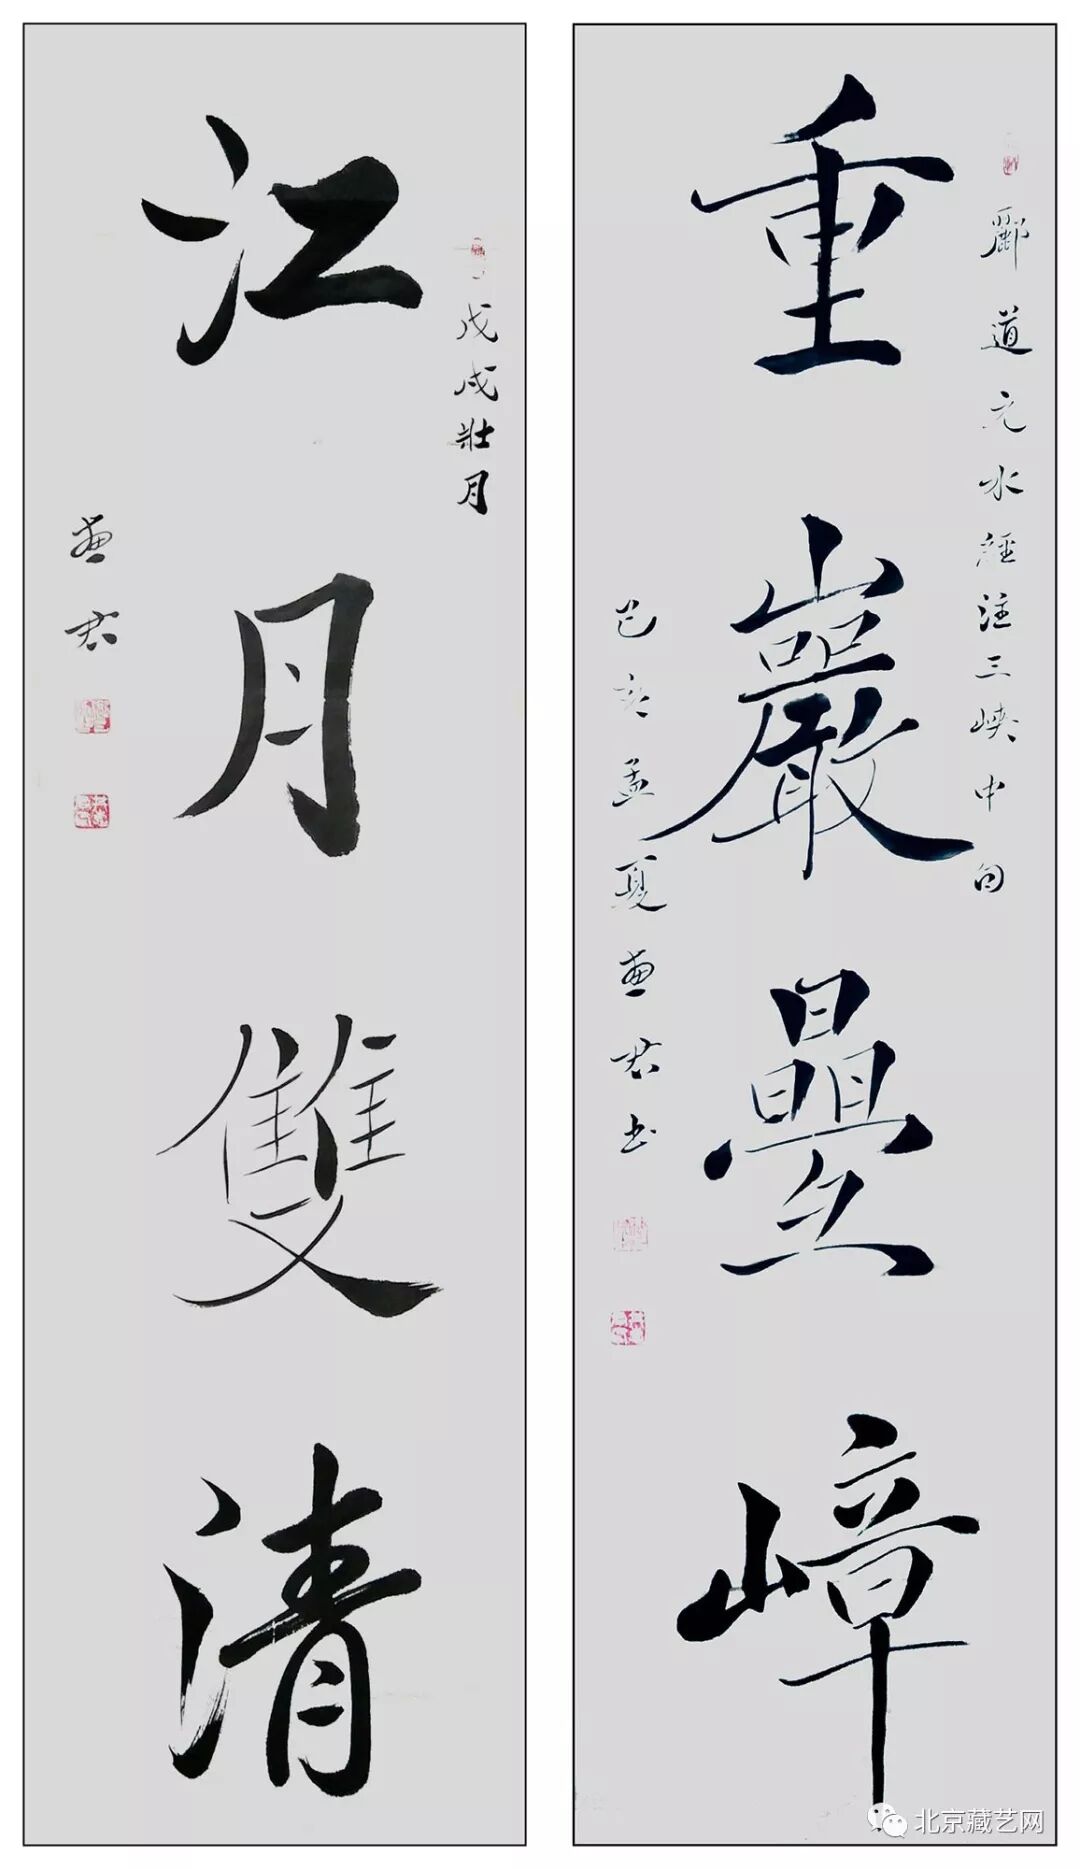 重巖疊嶂
酈道元水經注三峽中句
己亥孟夏惠君书
江月雙清
戊戌壯月
惠君
北京藏艺网